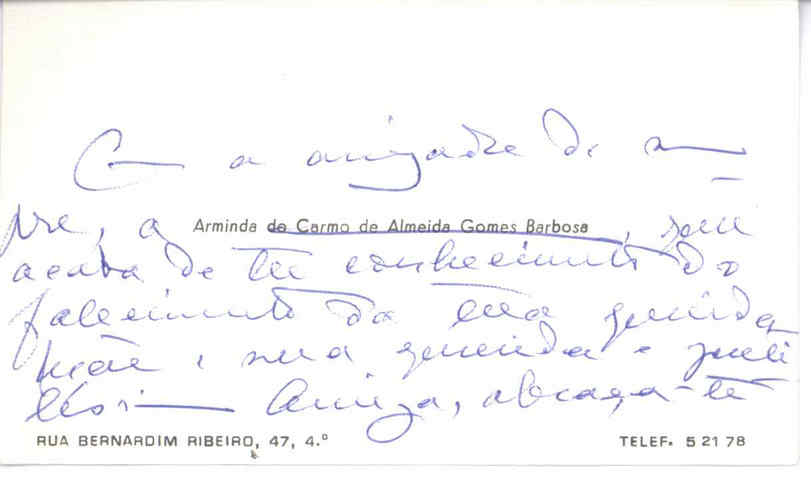 Com a amizade de sem-
pre, a Arminda do Carmo de Almeida Gomes Barbosa, que
acaba de ter conhecimento do
falecimento da tua querida
Mãe, e sua querida e
Amiga, abraça-te
RUA BERNARDIM RIBEIRO, 47, 4.º TELEF. 5 21 78